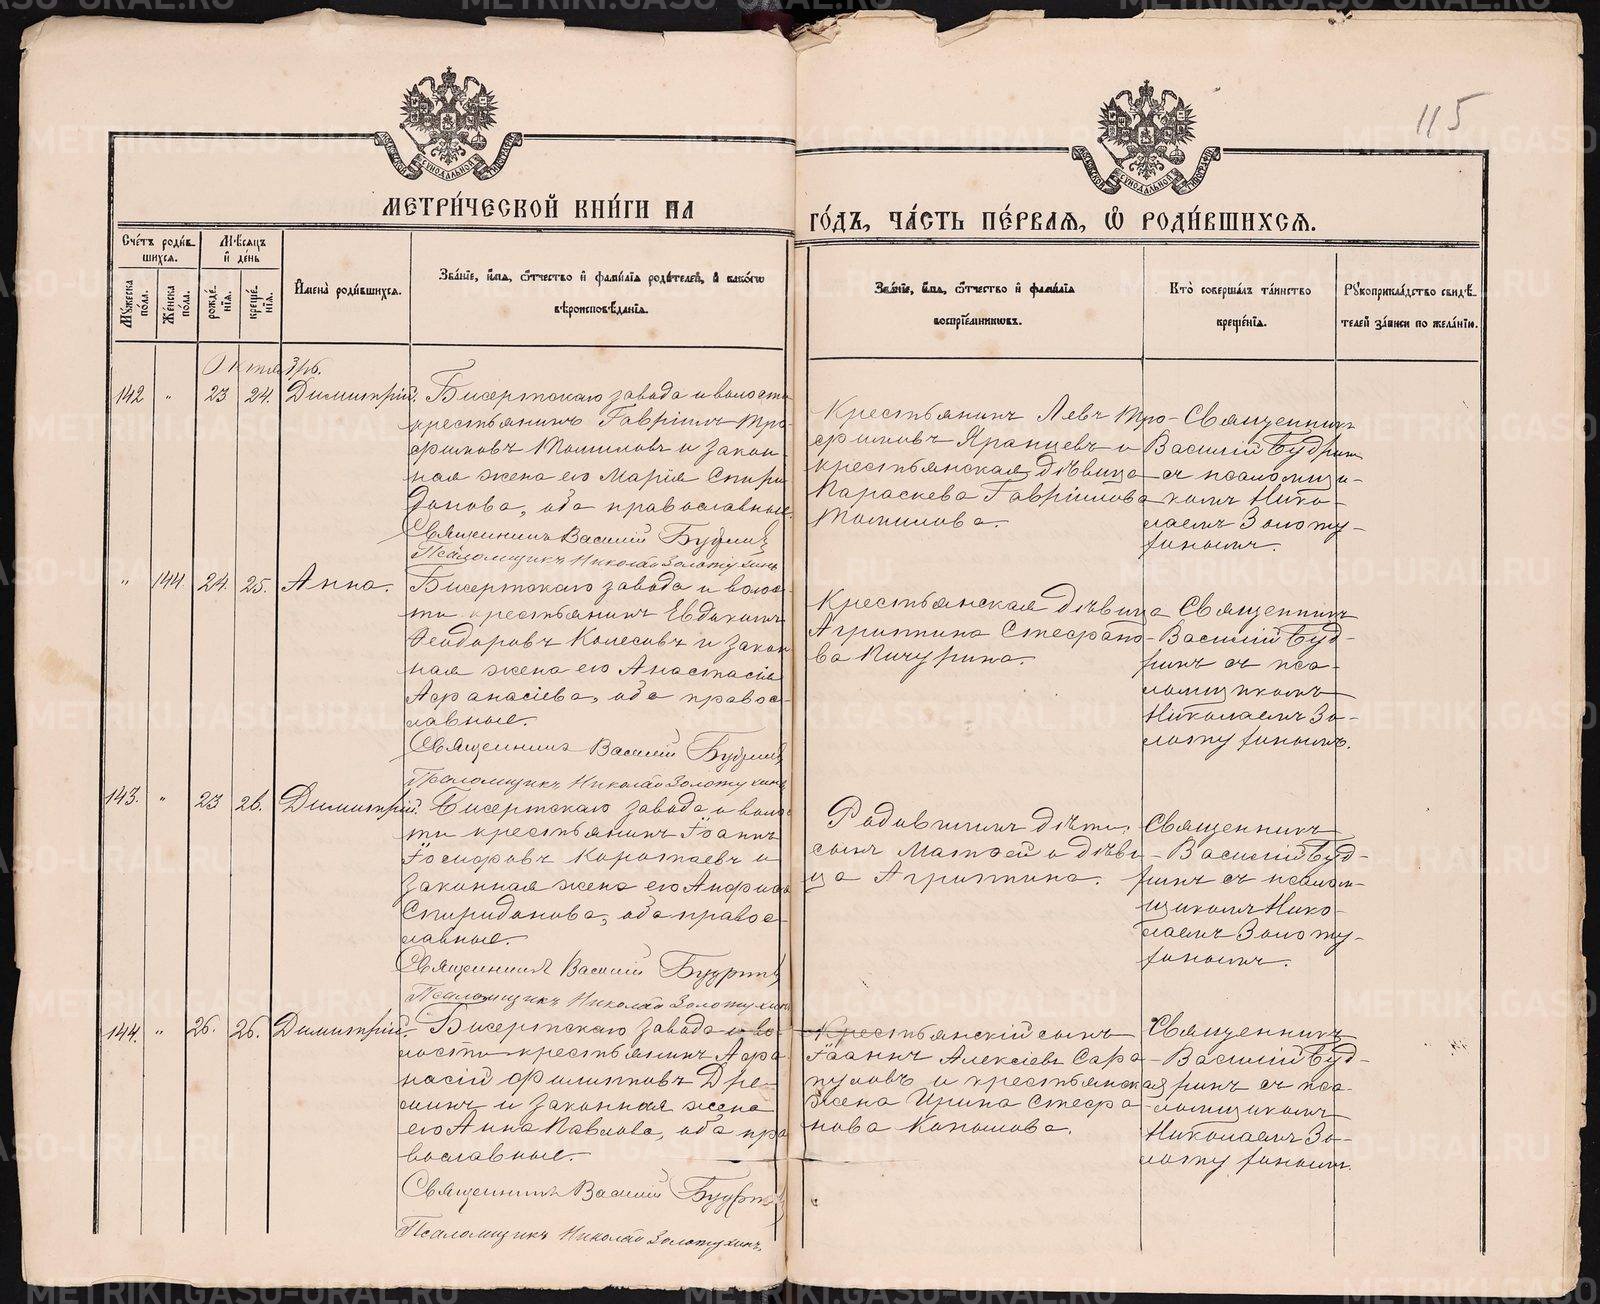 115
МОСКОВСКОЙ СѴНОДАЛЬНОЙ ТИПОГРАФІИ
МОСКОВСКОЙ СѴНОДАЛЬНОЙ ТИПОГРАФІИ
МЕТРИ́ЧЕСКОЙ КНИ́ГИ НА
ГО́ДЪ, ЧА́СТЬ ПЕ́РВАЯ, Ѡ РОДИ́ВШИХСЯ.
Сче́тъ роди́в-
шихся.
Мѣ́сяцъ
и҆ день
Му́жеска
по́ла.
Же́нска
по́ла.
рожде́-
нїя.
креще́-
нїя.
И҆мена̀ роди́вшихся.
Зва́нїе, и҆́мя, ѻ҆́тчество и҆ фами́лїя роди́телей, и҆ како́гѡ
вѣроисповѣ́данїя.
Зва́нїе, и҆́мя, ѻ҆́тчество и҆ фами́лїя
воспрїе́мникѡвъ.
Кто̀ соверша́лъ та́инство
креще́нїя.
Рꙋкоприкла́дство свидѣ́-
телей за́писи по жела́нїю.
Октябрь.
142 " 23 24. Димитрій.
Бисертскаго завода и волости
крестьянинъ Гавріилъ Тро-
фимовъ Томиловъ и закон-
ная жена его Марія Спири-
донова, оба православные.
Священникъ Василій Будринъ
Псаломщикъ Николай Золотухинъ
Крестьянинъ Левъ Тро-
фимовъ Яранцевъ и
крестьянская дѣвица
Параскева Гавріилова
Томилова.
Священникъ
Василій Будринъ
съ псаломщи-
комъ Нико-
лаемъ Золоту-
хинымъ.
" 144. 24. 25. Анна.
Бисертскаго завода и волос-
ти крестьянинъ Евдокимъ
Ѳеодоровъ Колесовъ и закон-
ная жена его Анастасія
Афанасіева, оба правос-
лавные.
Священникъ Василій Будринъ
Псаломщикъ Николай Золотухинъ
Крестьянская дѣвица
Агриппина Стефано-
ва Пичурина.
Священникъ
Василій Буд-
ринъ съ пса-
ломщикомъ
Николаемъ Зо-
лотухинымъ.
143. " 23 26. Димитрій.
Бисертскаго завода и волос-
ти крестьянинъ Іоаннъ
Іосифовъ Коротаевъ и
законная жена его Анфиса
Спиридонова, оба правос-
лавные.
Священникъ Василій Будринъ
Псаломщикъ Николай Золотухинъ
Родившимъ дѣти,
сынъ Матѳей и дѣви-
ца Агриппина.
Священникъ
Василій Буд-
ринъ съ псалом-
щикомъ Нико-
лаемъ Золоту-
хинымъ.
144. " 26. 26. Димитрій.
Бисертскаго завода и во-
лости крестьянинъ Афа-
насій Филипповъ Дре-
минъ и законная жена
его Анна Павлова, оба пра-
вославные.
Священникъ Василій Будринъ
Псаломщикъ Николай Золотухинъ
Крестьянскій сынъ
Іоаннъ Алексіевъ Сара-
пуловъ и крестьянская
жена Ирина Стефа-
нова Копылова.
Священникъ
Василій Буд-
ринъ съ пса-
ломщикомъ
Николаемъ Зо-
лотухинымъ.